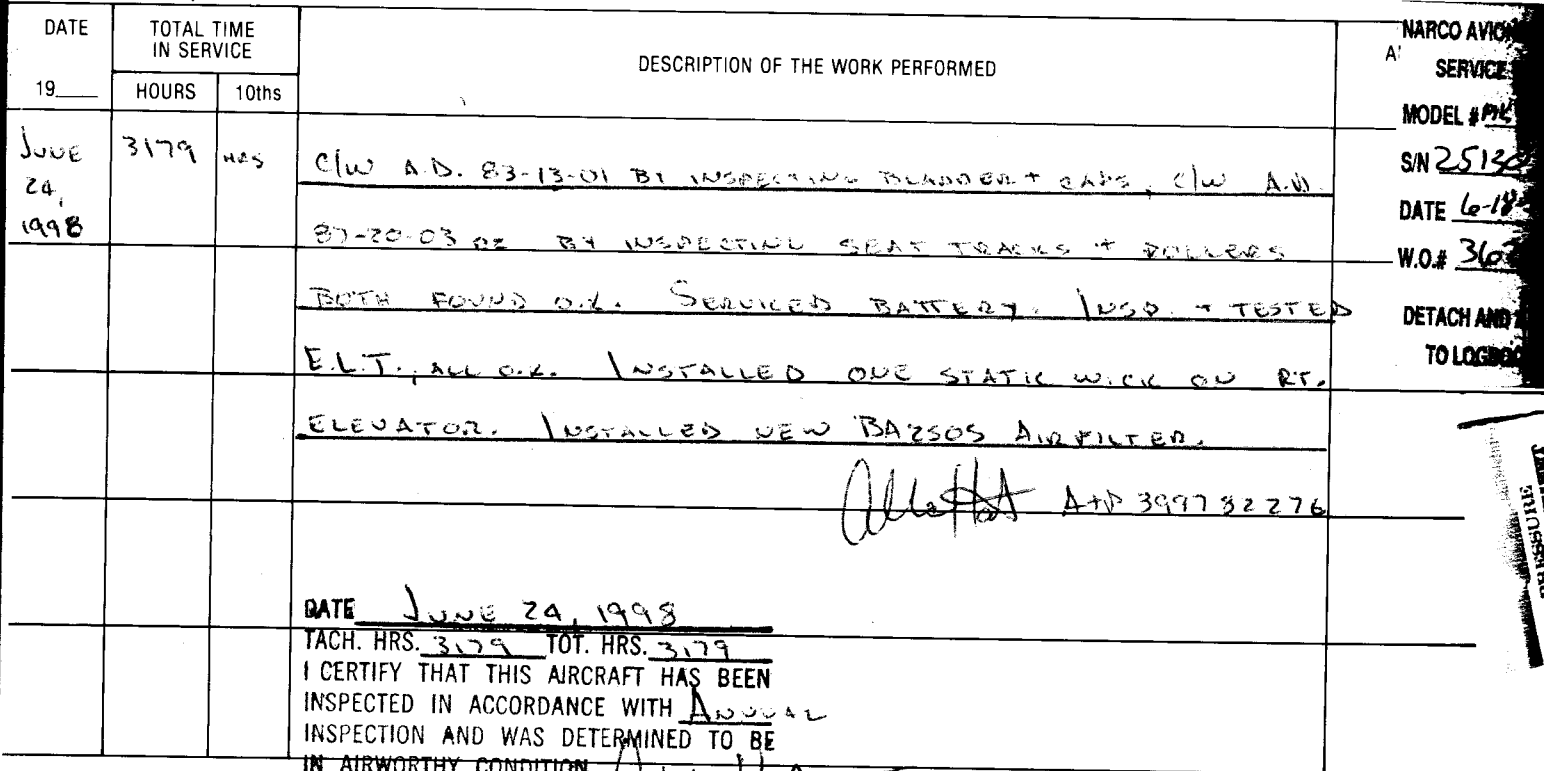 DATE
TOTAL TIME
IN SERVICE
DESCRIPTION OF THE WORK PERFORMED
19
HOURS
10ths
JUNE
24,
1998
3179
HRS
C/W A.D. 83-13-01 BY INSPECTING BLADDER + CAPS, C/W A.D.
87-20-03 R2 BY INSPECTING SEAT TRACKS + ROLLERS
BOTH FOUND O.K. SERVICED BATTERY. INSP. + TESTED
E.L.T., ALL O.K. INSTALLED ONE STATIC WICK ON RT.
ELEVATOR. INSTALLED NEW BA2505 AIRFILTER.
A+P 399782276
DATE JUNE 24, 1998
TACH. HRS. 3179 TOT. HRS. 3179
I CERTIFY THAT THIS AIRCRAFT HAS BEEN
INSPECTED IN ACCORDANCE WITH ANNUAL
INSPECTION AND WAS DETERMINED TO BE
IN AIRWORTHY CONDITION
NARCO
SERVICE
MODEL #
S/N 2513
DATE 6-18
W.O.# 36
DETACH AND
TO